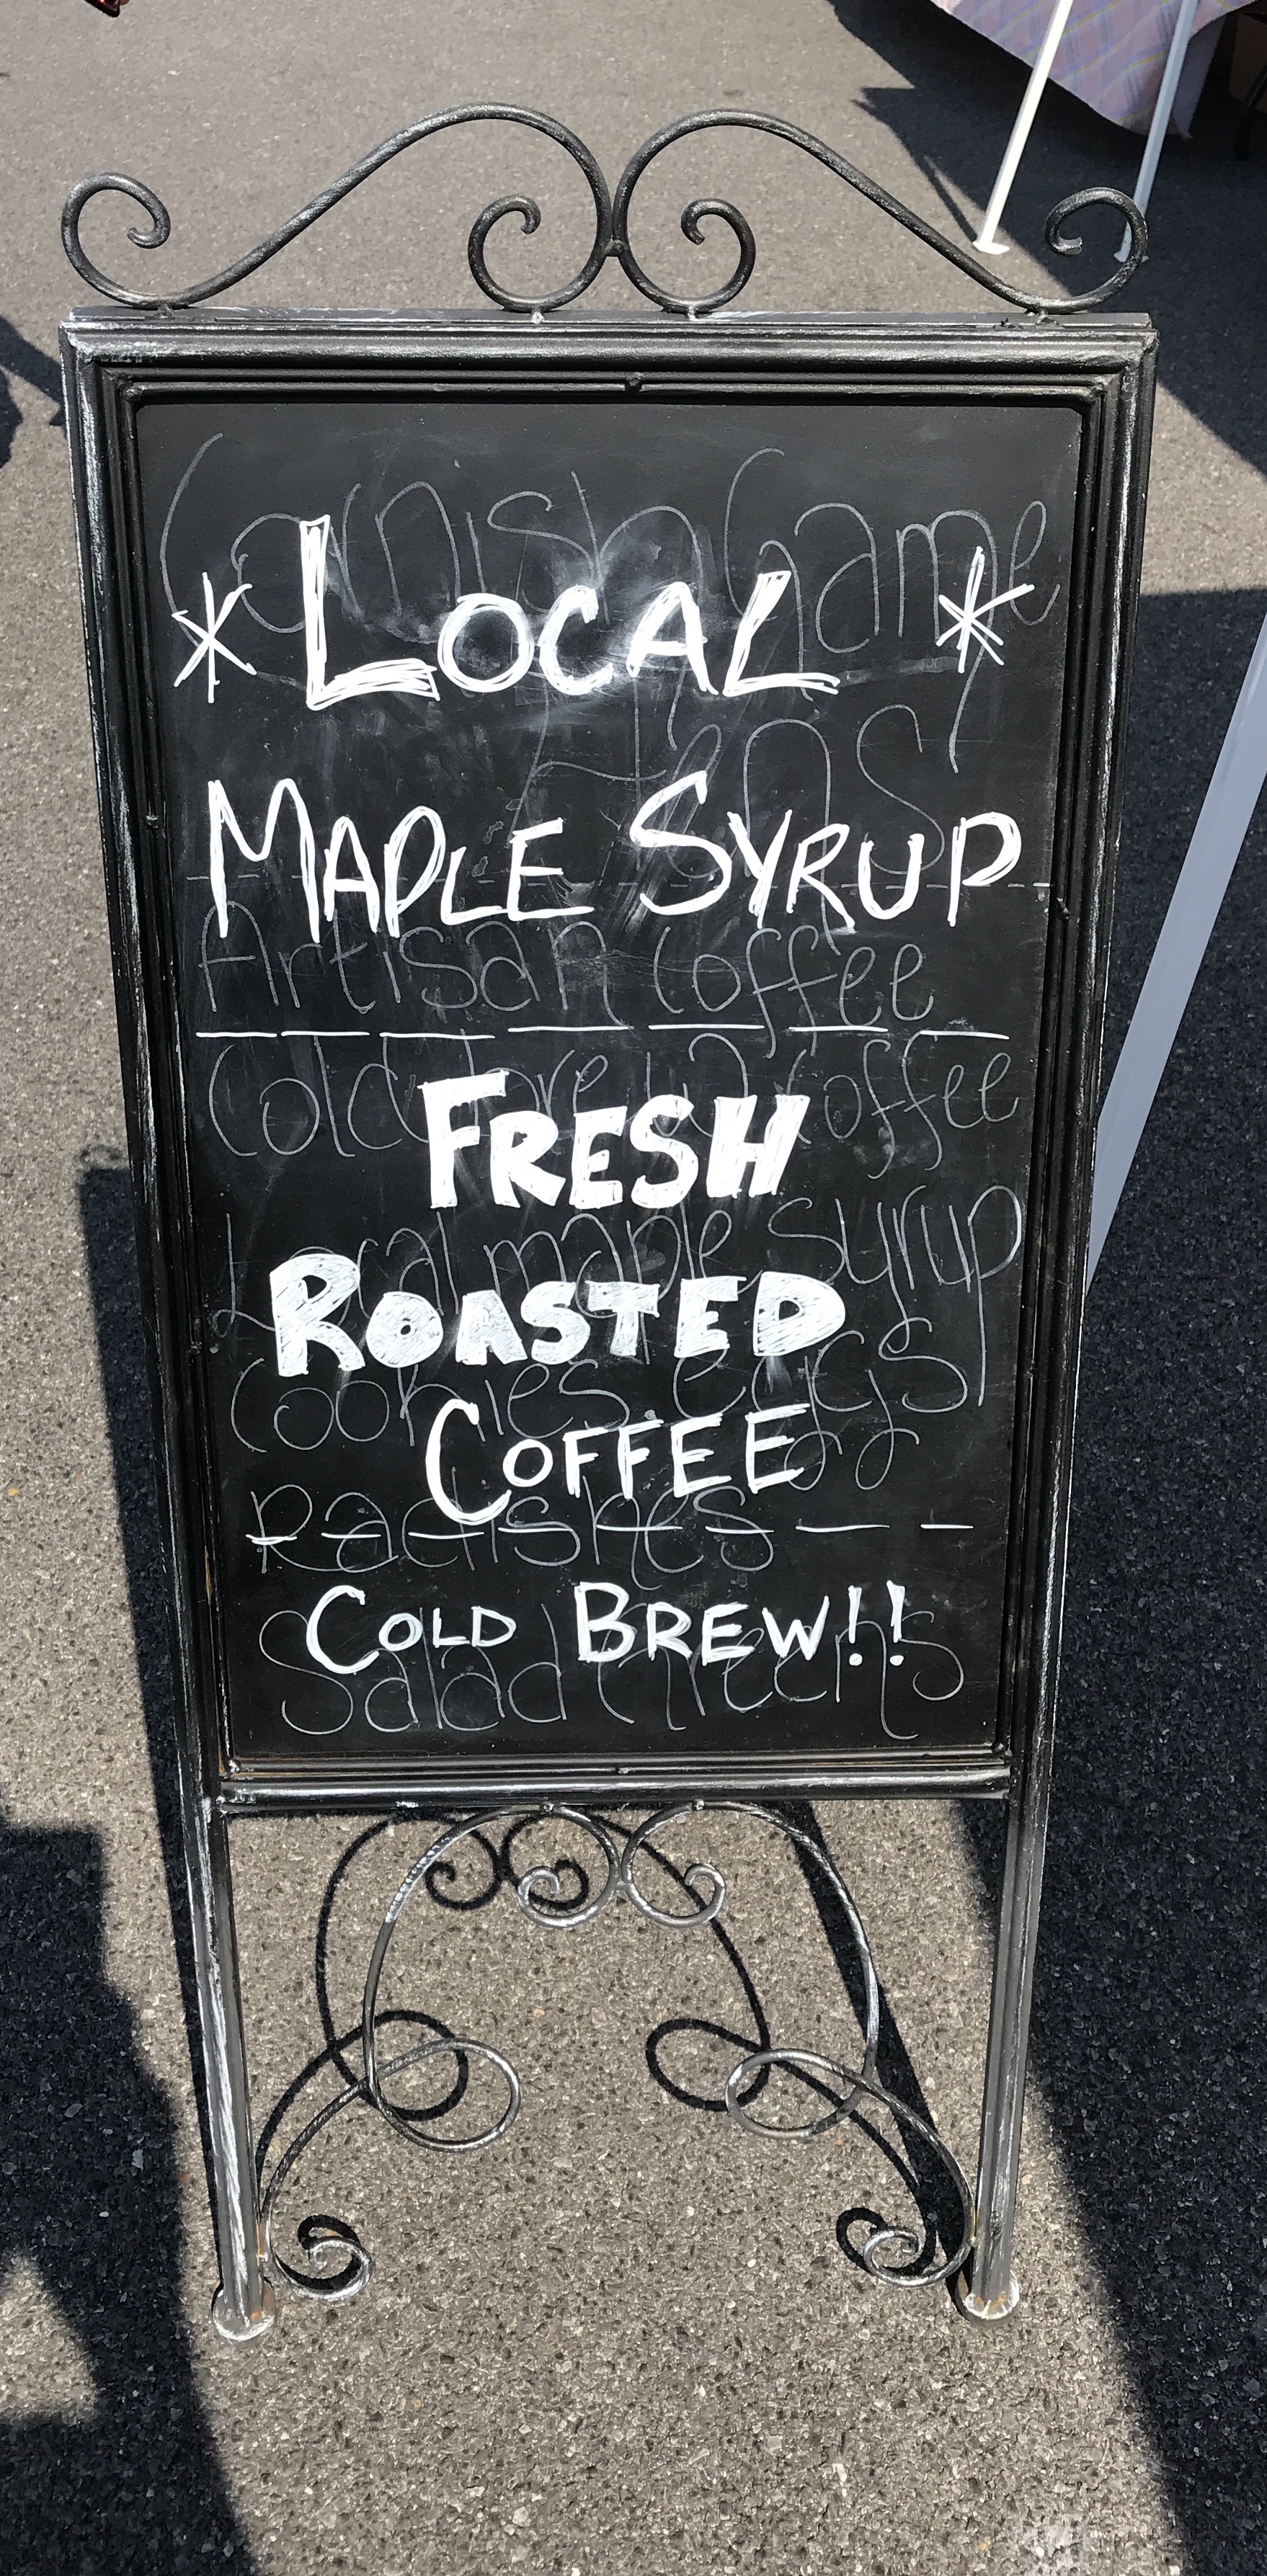 Cornish Game
* LOCAL *
Hens
MAPLE SYRUP
Artisan Coffee
Cold Brew Coffee
FRESH
Local maple syrup
ROASTED
Cookies eggs
COFFEE
Radishes
COLD BREW!!
Salad Greens